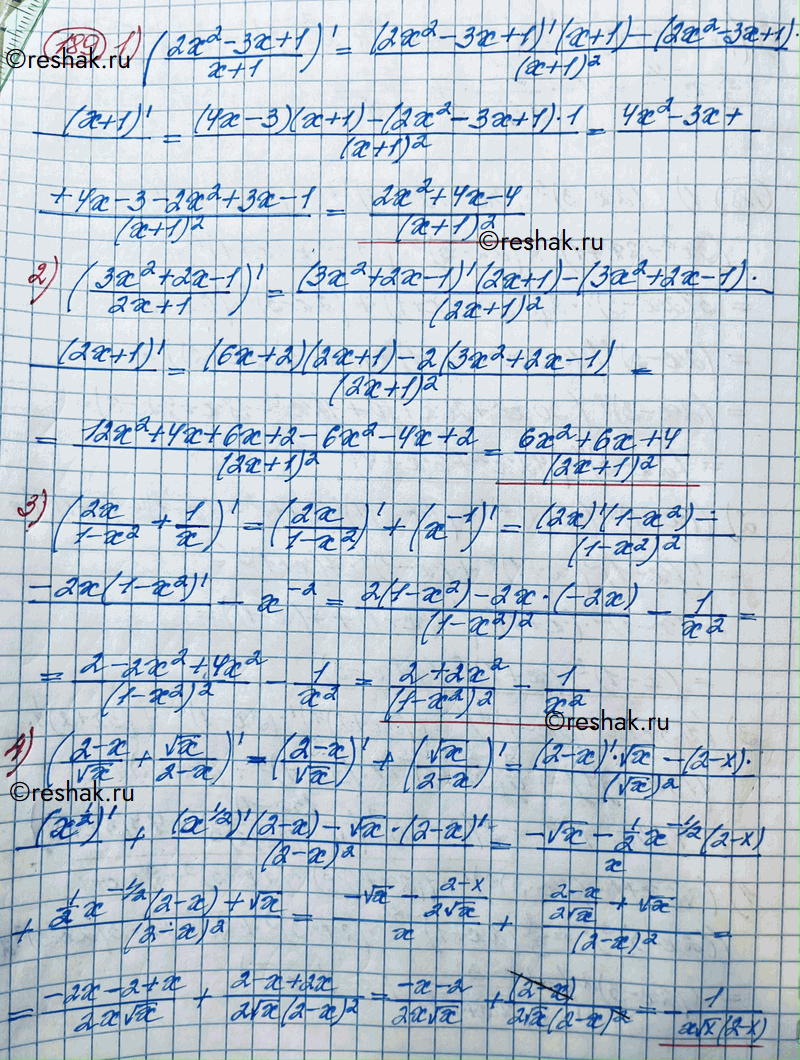 189 1) ((2x² - 3x + 1)/(x+1))' = ((2x² - 3x + 1)'(x+1) - (2x² - 3x + 1)·)/(x+1)²
©reshak.ru
(x+1)'/ = ((4x-3)(x+1) - (2x² - 3x + 1)·1)/(x+1)² = 4x² - 3x +
(+4x - 3 - 2x² + 3x - 1)/(x+1)² = (2x² + 4x - 4)/(x+1)²
©reshak.ru
2) ((3x² + 2x - 1)/(2x+1))' = ((3x² + 2x - 1)'(2x+1) - (3x² + 2x - 1)·)/(2x+1)²
(2x+1)'/ = ((6x+2)(2x+1) - 2(3x² + 2x - 1))/(2x+1)² =
= (12x² + 4x + 6x + 2 - 6x² - 4x + 2)/(2x+1)² = (6x² + 6x + 4)/(2x+1)²
3) (2x/(1-x²) + 1/x)' = (2x/(1-x²))' + (x⁻¹)' = ((2x)'(1-x²) -)/(1-x²)²
-2x(1-x²)'/ - x⁻² = (2(1-x²) - 2x·(-2x))/(1-x²)² - 1/x² =
= (2 - 2x² + 4x²)/(1-x²)² - 1/x² = (2 + 2x²)/(1-x²)² - 1/x²
©reshak.ru
4) ((2-x)/√x + √x/(2-x))' = ((2-x)/√x)' + (√x/(2-x))' = ((2-x)'·√x - (2-x)·)/(√x)²
©reshak.ru
(x^½)'/ + ((x^1/2)'(2-x) - √x·(2-x)')/(2-x)² = (-√x - ½x^-1/2(2-x))/x
+ (½x^-1/2(2-x) + √x)/(2-x)² = (-√x - (2-x)/(2√x))/x + ((2-x)/(2√x) + √x)/(2-x)² =
= (-2x - 2 + x)/(2x√x) + (2 - x + 2x)/(2√x(2-x)²) = (-x-2)/(2x√x) + (2-x)/(2√x(2-x)²) = -1/(x√x(2-x))